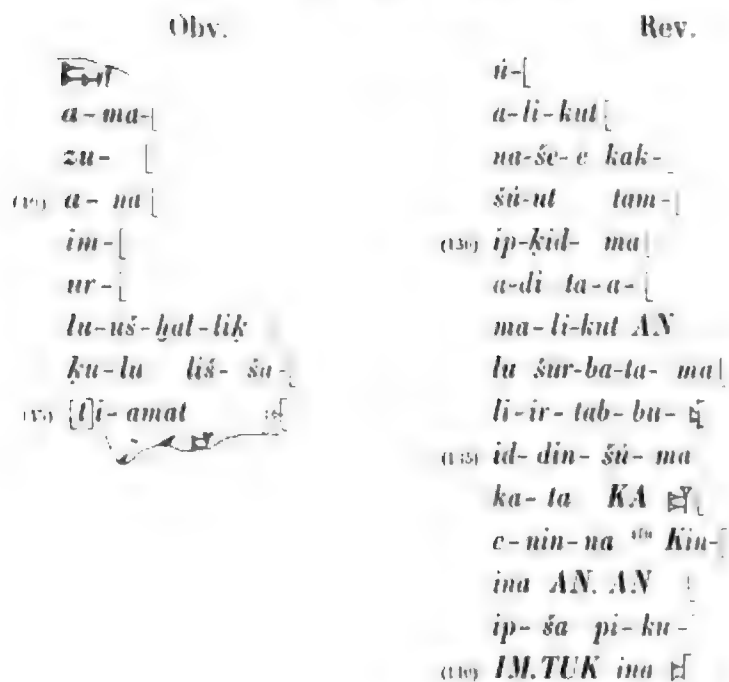 Obv.
a-ma-[
zu- [
a- na [
im-[
ur-[
lu-uš-ḫal-liḳ
ḳu-lu liš-ša-[
[t]i-amat
Rev.
ú-[
a-li-kut [
na-še-e kak-[
šú-ut tam-[
(130) ip-ḳid- ma [
a-di ta-a-[
ma-li-kut AN
lu šur-ba-ta- ma [
li-ir-tab-bu-
(135) id-din-šú-ma
ka-ta KA
e-nin-na ilu Kin-[
ina AN. AN [
ip-ša pi-ku-[
(140) IM.TUK ina